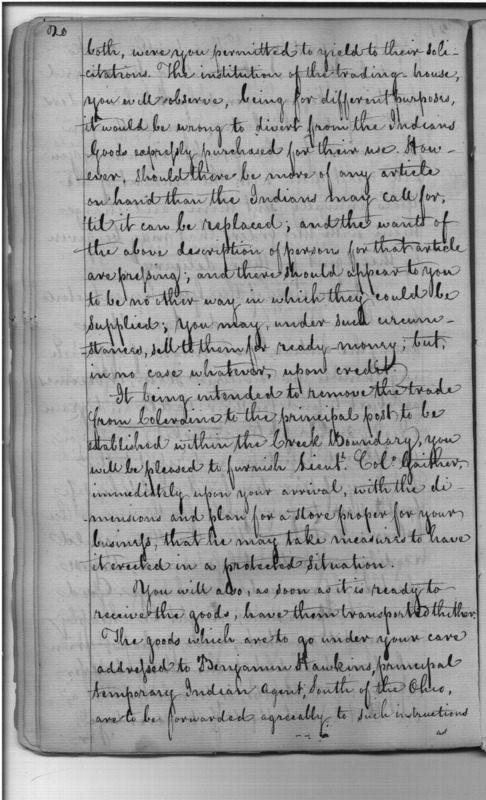 520
both, were you permitted to yield to their soli-
citations. The institution of the trading house,
you will observe, being for different purposes,
it would be wrong to divert from the Indians
Goods expressly purchased for their use. How-
ever, should there be more of any article
on hand than the Indians may call for,
'til it can be replaced; and the wants of
the above description of person for that article
are pressing; and there should appear to you
to be no other way in which they could be
supplied; you may, under such circum-
stances, sell to them for ready money; but,
in no case whatever, upon credit.
It being intended to remove the trade
from Coleraine to the principal post to be
established within the Creek Boundary, you
will be pleased to furnish Lieut. Colo. Gaither,
immediately upon your arrival, with the di-
mensions and plan for a store proper for your
business, that he may take measures to have
it erected in a protected situation.
You will also, as soon as it is ready to
receive the goods, have them transported thither.
The goods which are to go under your care
addressed to Benjamin Hawkins, principal
temporary Indian Agent, South of the Ohio,
are to be forwarded agreeally to such instructions
as